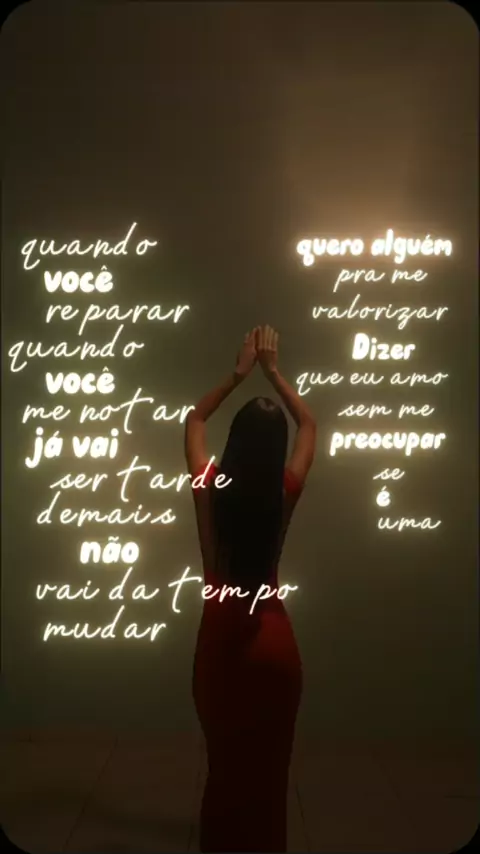 quando
você
reparar
quando
você
me notar
já vai
ser tarde
demais
não
vai da tempo
mudar
quero alguém
pra me
valorizar
Dizer
que eu amo
sem me
preocupar
se
é
uma